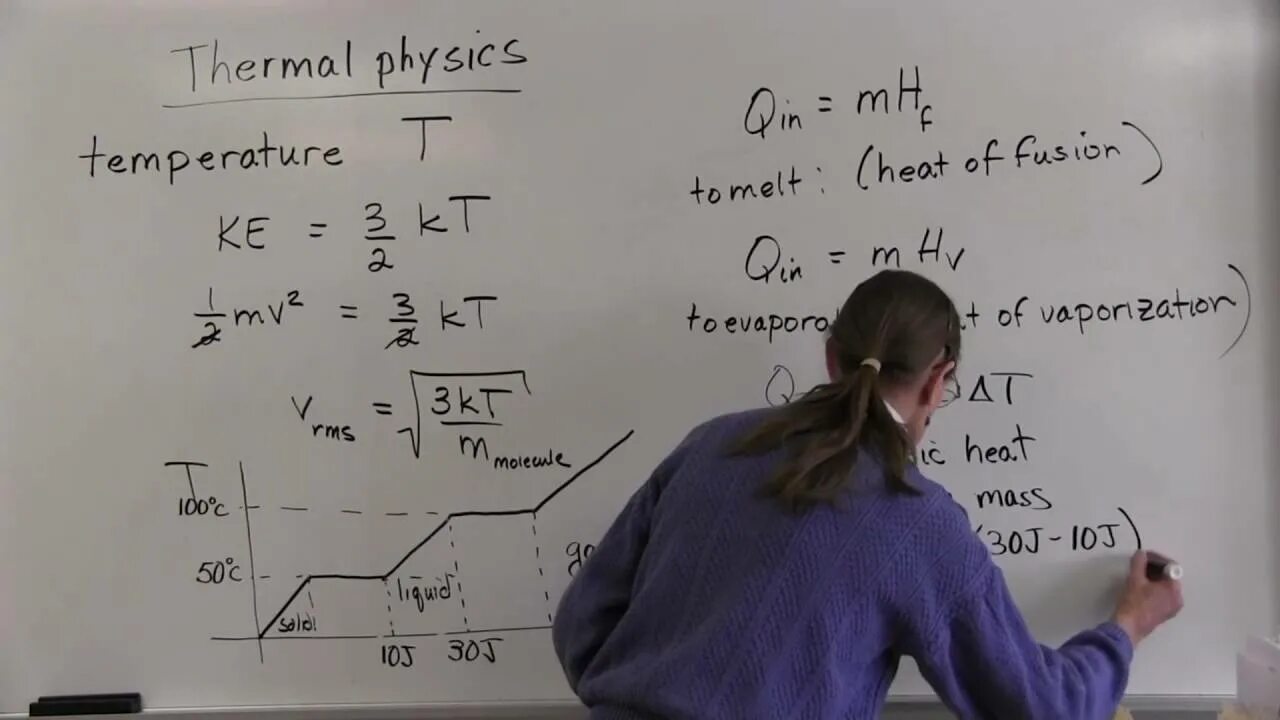 Thermal physics
temperature T
KE = 3/2 kT
1/2 mv² = 3/2 kT
v rms = √(3kT / m molecule)
T
100°C
50°C
solid
liquid
10J 30J
Qin = mHf
to melt: (heat of fusion)
Qin = mHv
of vaporization)
Q ΔT
heat
mass
(30J - 10J)